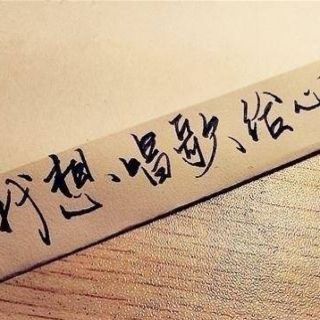 我想、唱歌、给心